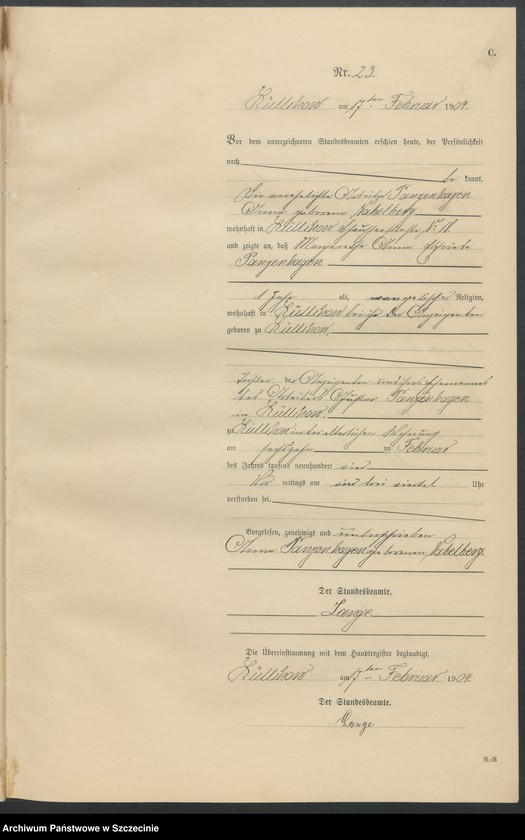 C.
Nr. 23.
Züllchow am 17ten Februar 1904.
Vor dem unterzeichneten Standesbeamten erschien heute, der Persönlichkeit
nach
be kannt,
die verehelichte Arbeiter Panzenhagen
Anna geborene Nabelberg
wohnhaft in Züllchow Chausseestraße
und zeigte an, daß Margarethe Anna
Panzenhagen
1 Jahr alt, evangelischer Religion,
wohnhaft in Züllchow bei ihr der Anzeigenden
geboren zu Züllchow,
Tochter der Anzeigenden und ihres Ehemannes
des Arbeiters Gustav Panzenhagen
in Züllchow.
zu Züllchow in der elterlichen Wohnung
am sechszehn ten Februar
des Jahres tausend neunhundert vier
Vor mittags um drei viertel Uhr
verstorben sei.
Vorgelesen, genehmigt und unterschrieben
Anna Panzenhagen geborenen Nabelberg.
Der Standesbeamte.
Lange
Die Übereinstimmung mit dem Hauptregister beglaubigt.
Züllchow am 17ten Februar 1904.
Der Standesbeamte.
Lange
Archiwum Państwowe w Szczecinie